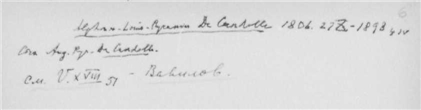 Alphons-Louis-Pyramus De Candolle 1806. 27 X - 1893 4 IV
Сын Aug. Pyr. De Candolle.
см. V. XVIII 51 - Вавилов.
6